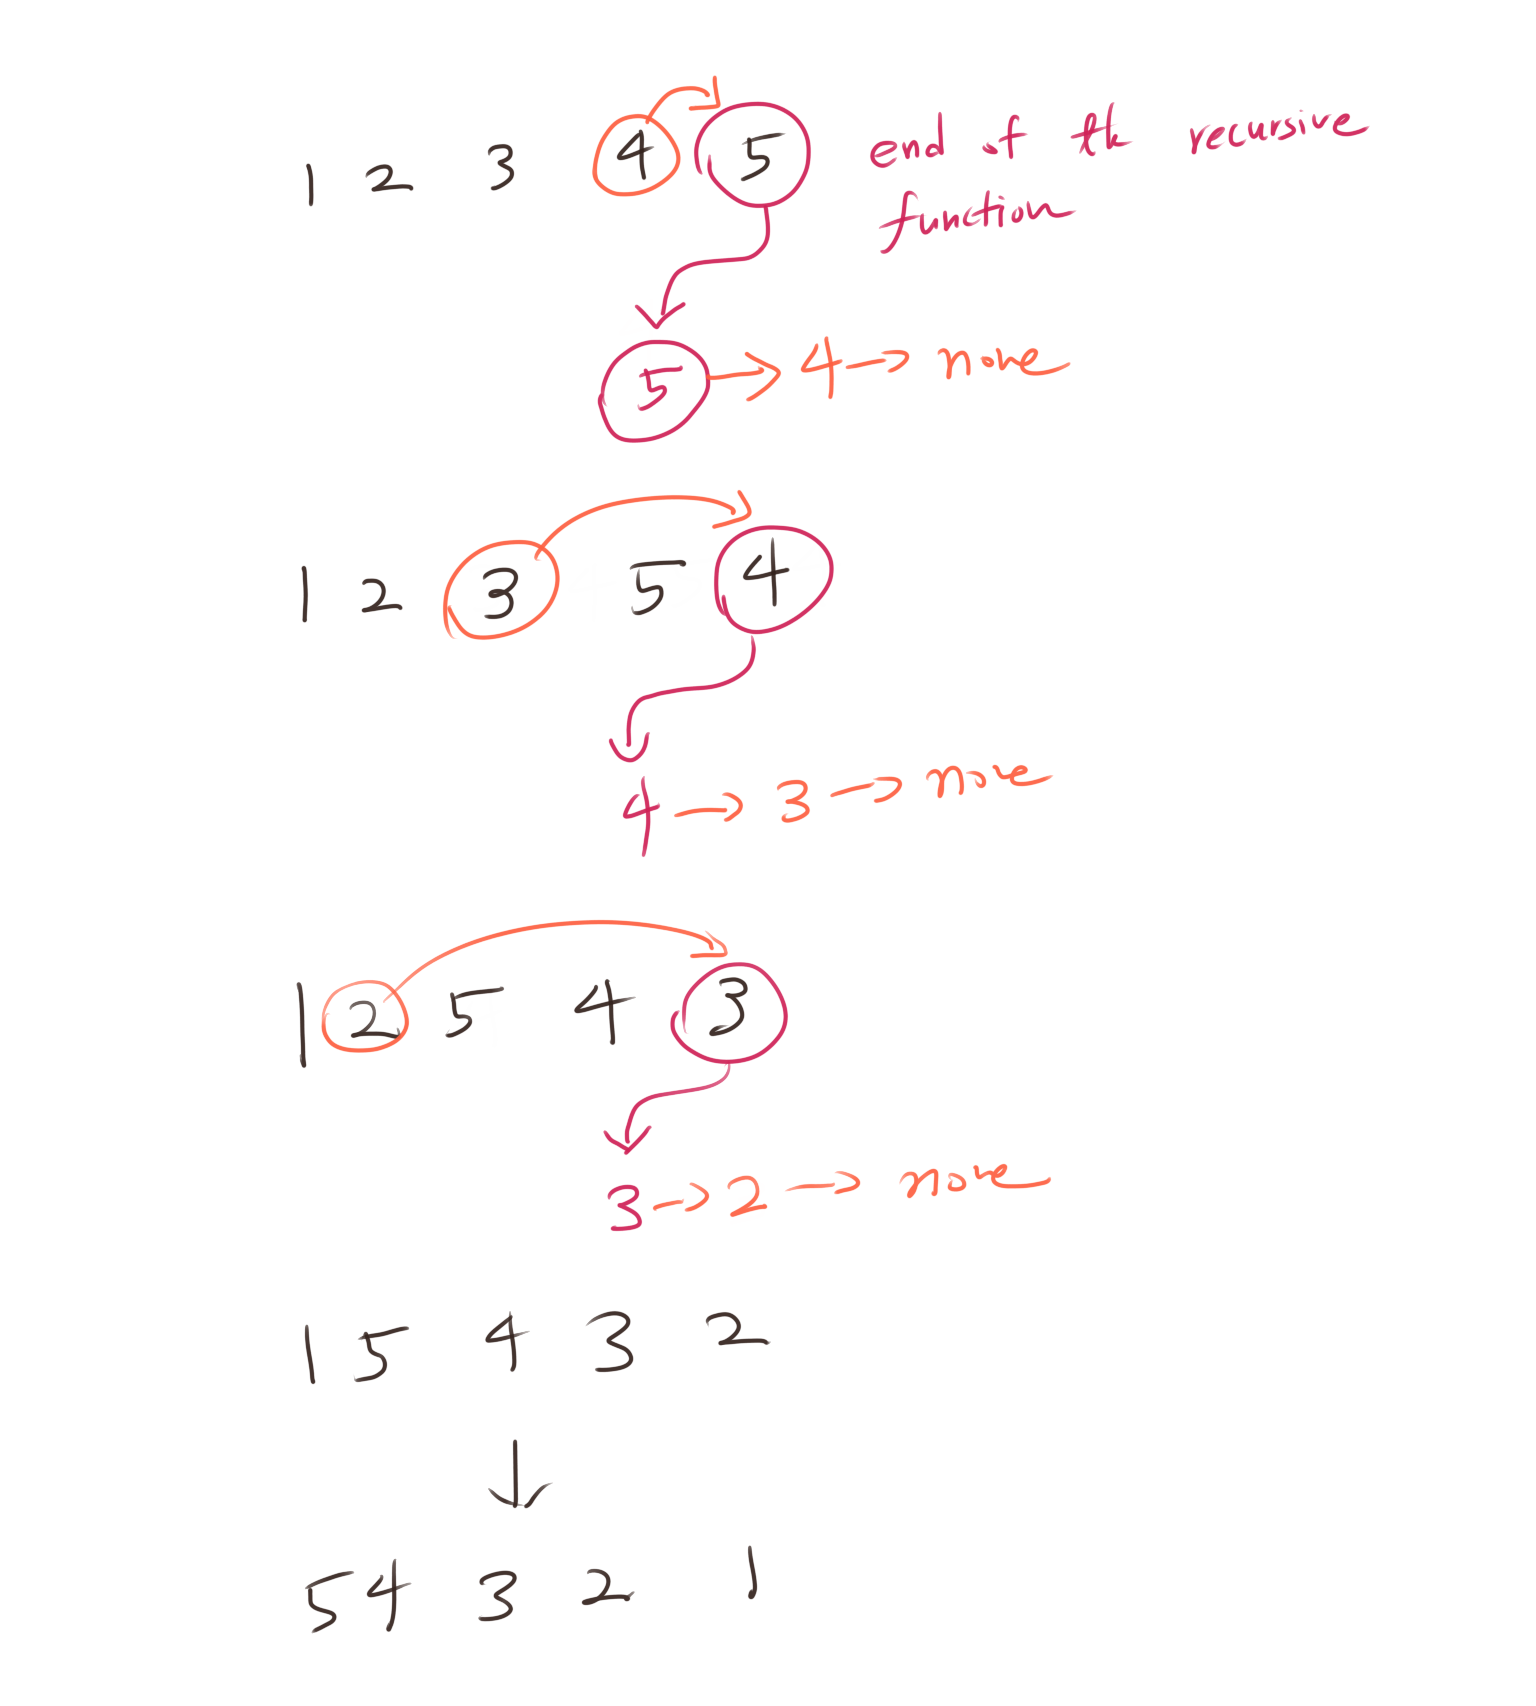 1 2 3 4 5 end of the recursive
function
5 → 4 → none
1 2 3 5 4
4 → 3 → none
1 2 5 4 3
3 → 2 → none
1 5 4 3 2
↓
5 4 3 2 1